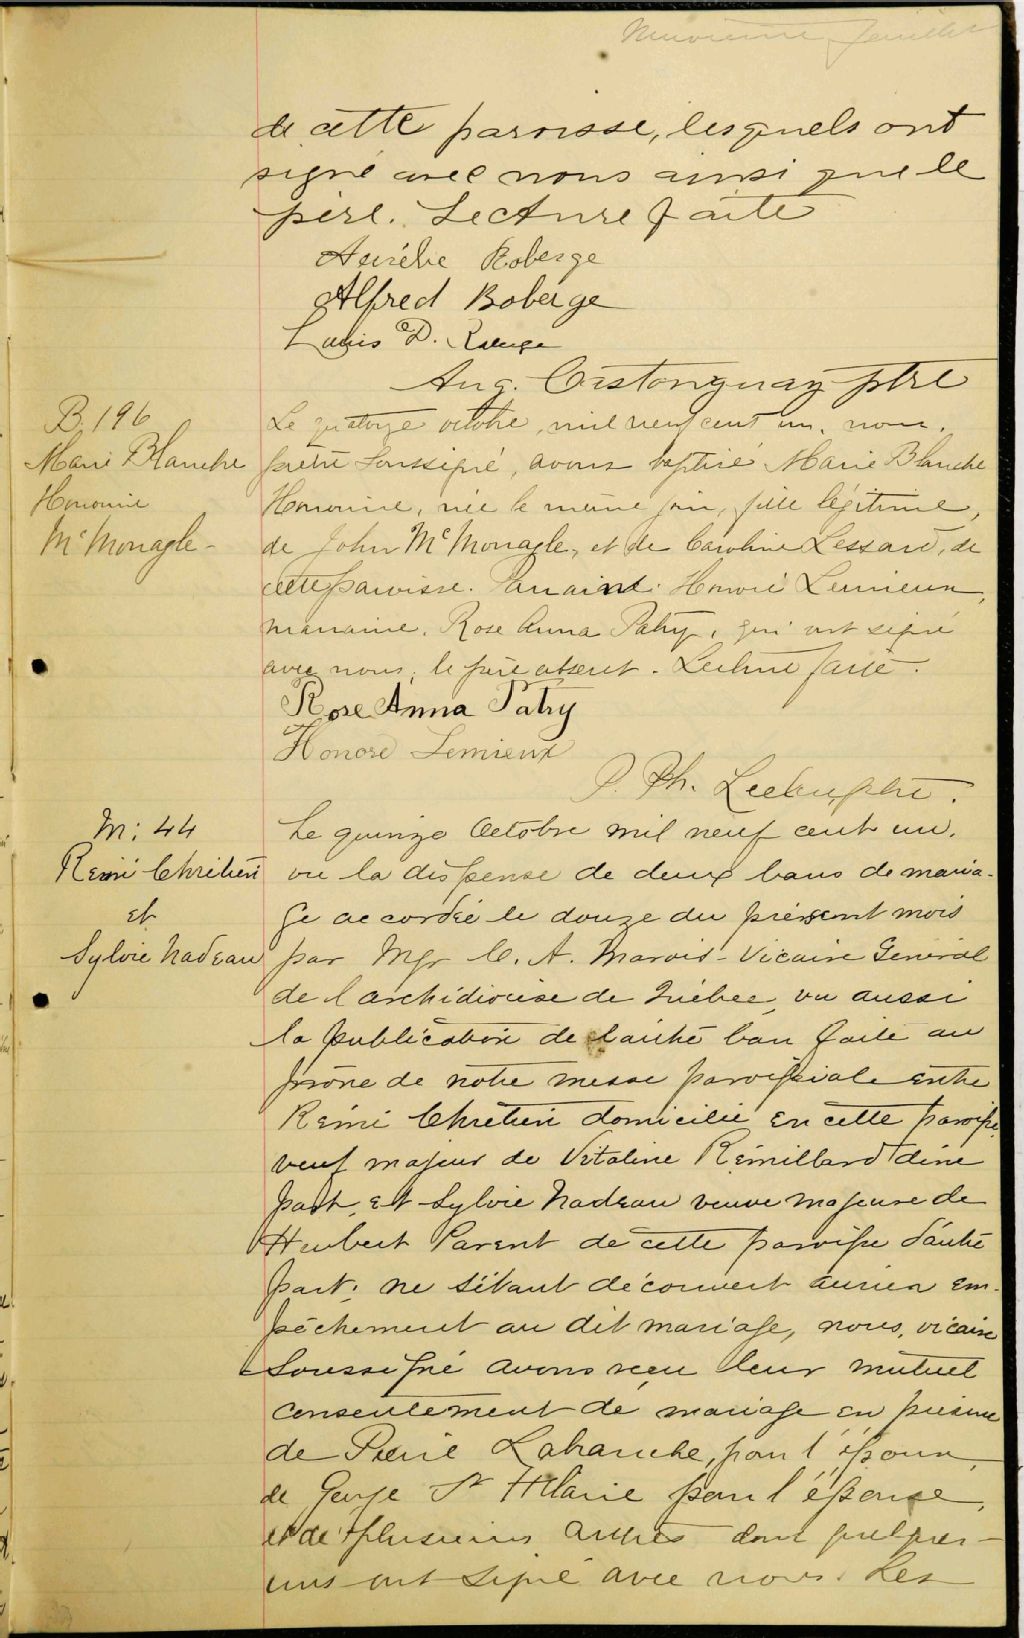 Neuvième feuillet
de cette paroisse, lesquels ont
signé avec nous ainsi que le
père. Lecture faite
Aurélie Roberge
Alfred Roberge
Louis D. Roberge
Aug. Castonguay ptre
B. 196
Marie Blanche
Honorine
McMonagle-
Le quatorze octobre, mil neuf cent un, nous,
prêtre soussigné, avons baptisé Marie Blanche
Honorine, née le même jour, fille légitime,
de John McMonagle, et de Caroline Lessard, de
cette paroisse. Parrain: Honoré Lemieux,
marraine, Rose Anna Patry, qui ont signé
avec nous, le père absent. Lecture faite.
Rose Anna Patry
Honoré Lemieux
P. Ph. ptre.
M: 44
Rémi Chrétien
et
Sylvie Nadeau
Le quinze Octobre mil neuf cent un,
vu la dispense de deux bans de maria-
ge accordée le douze du présent mois
par Mgr C. A. Marois- Vicaire Général
de l'archidiocèse de Québec, vu aussi
la publication de l'autre ban faite au
prône de notre messe paroissiale entre
Rémi Chrétien domicilié en cette paroisse,
veuf majeur de Vitaline Rémillard d'une
part, et Sylvie Nadeau veuve majeure de
Herbert Parent de cette paroisse d'autre
part; ne s'étant découvert aucun em-
pêchement au dit mariage, nous, vicaire
soussigné avons reçu leur mutuel
consentement de mariage en présence
de Pierre Labranche, pour l'époux,
de George St Hilaire pour l'épouse,
et de plusieurs autres dont quelques-
uns ont signé avec nous. Les